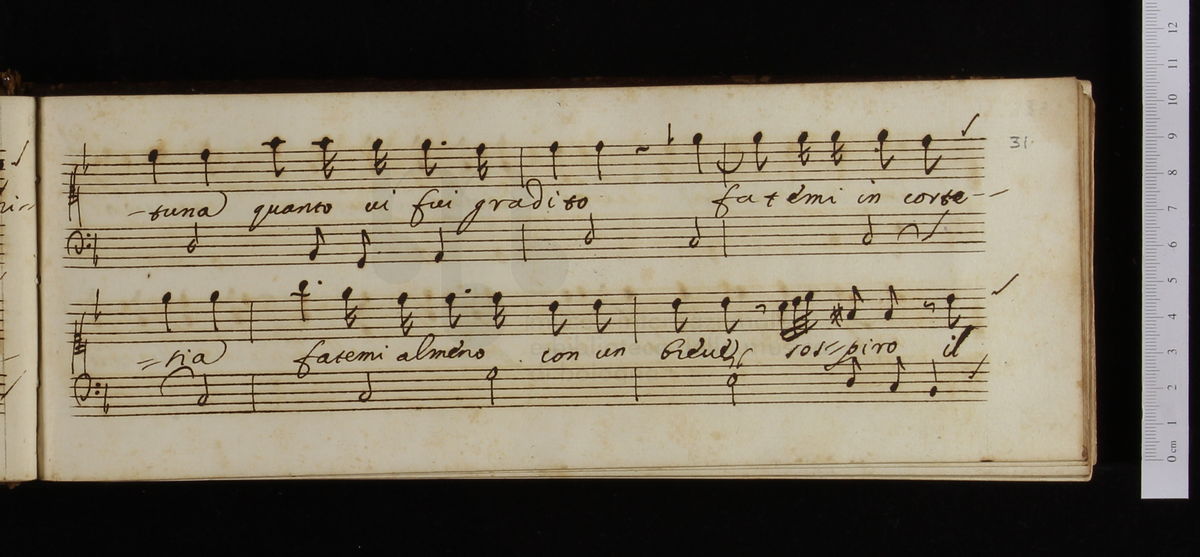 31.
-tuna quanto vi fui gradito fatémi in corte-
=sia fatemi alméno con un breue sos=piro il
12
11
10
9
8
7
6
5
4
3
2
1
0 cm